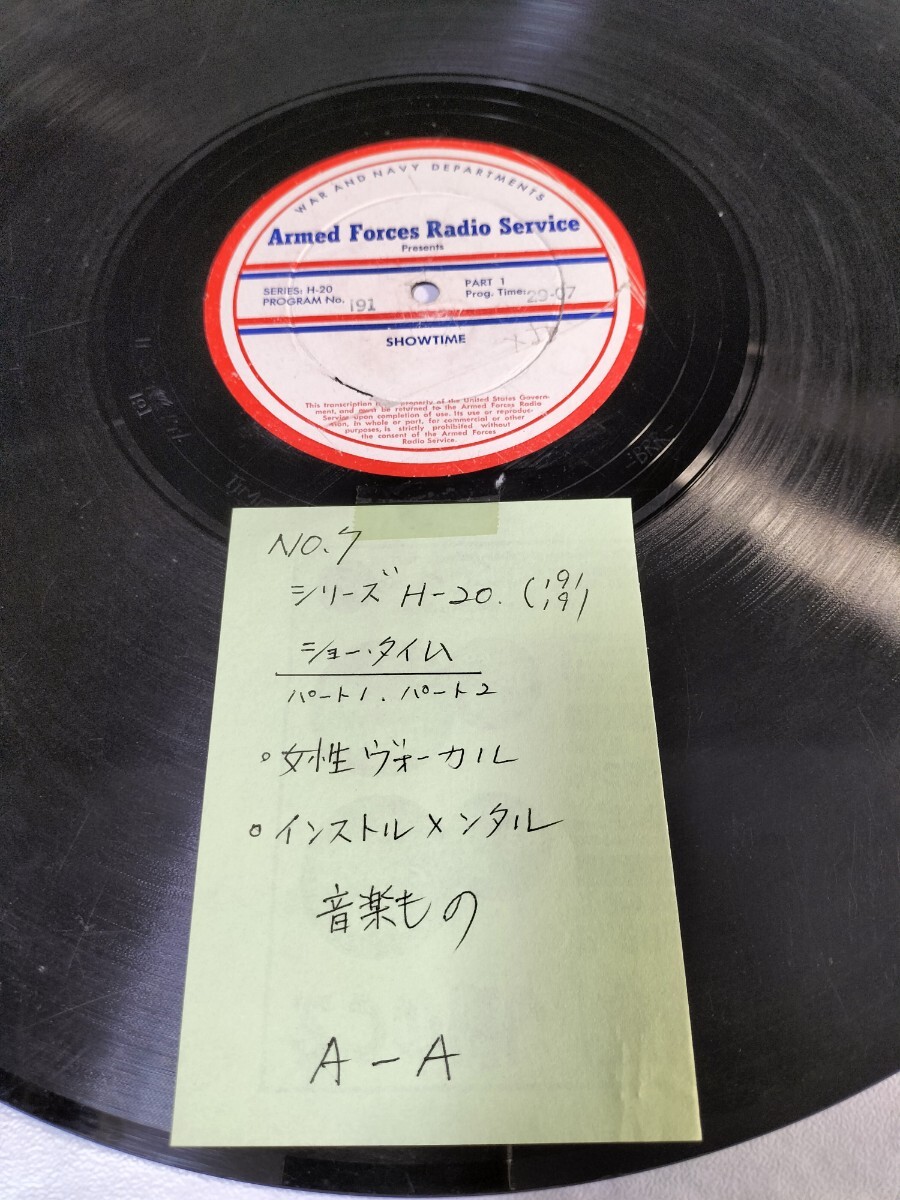 WAR AND NAVY DEPARTMENTS
Armed Forces Radio Service
Presents
SERIES: H-20
PROGRAM No. 191
PART 1
Prog. Time: 29-07
SHOWTIME
This transcription is property of the United States Govern-
ment, and must be returned to the Armed Forces Radio
Service upon completion of use. Its use or reproduc-
tion, in whole or part, for commercial or other
purposes, is strictly prohibited without
the consent of the Armed Forces
Radio Service.
191
-BRK-
NO.7
シリーズ H-20. (191
191
ショー・タイム
パート1. パート2
○女性ヴォーカル
○インストルメンタル
音楽もの
A-A